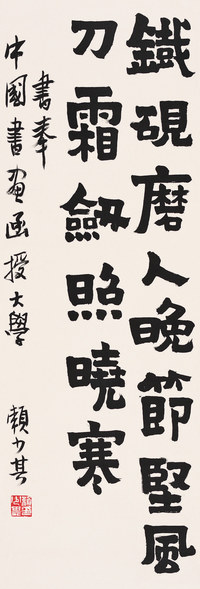 鐵硯磨人晚節堅風
刀霜劒照曉寒
書奉
中國書画函授大學
賴少其